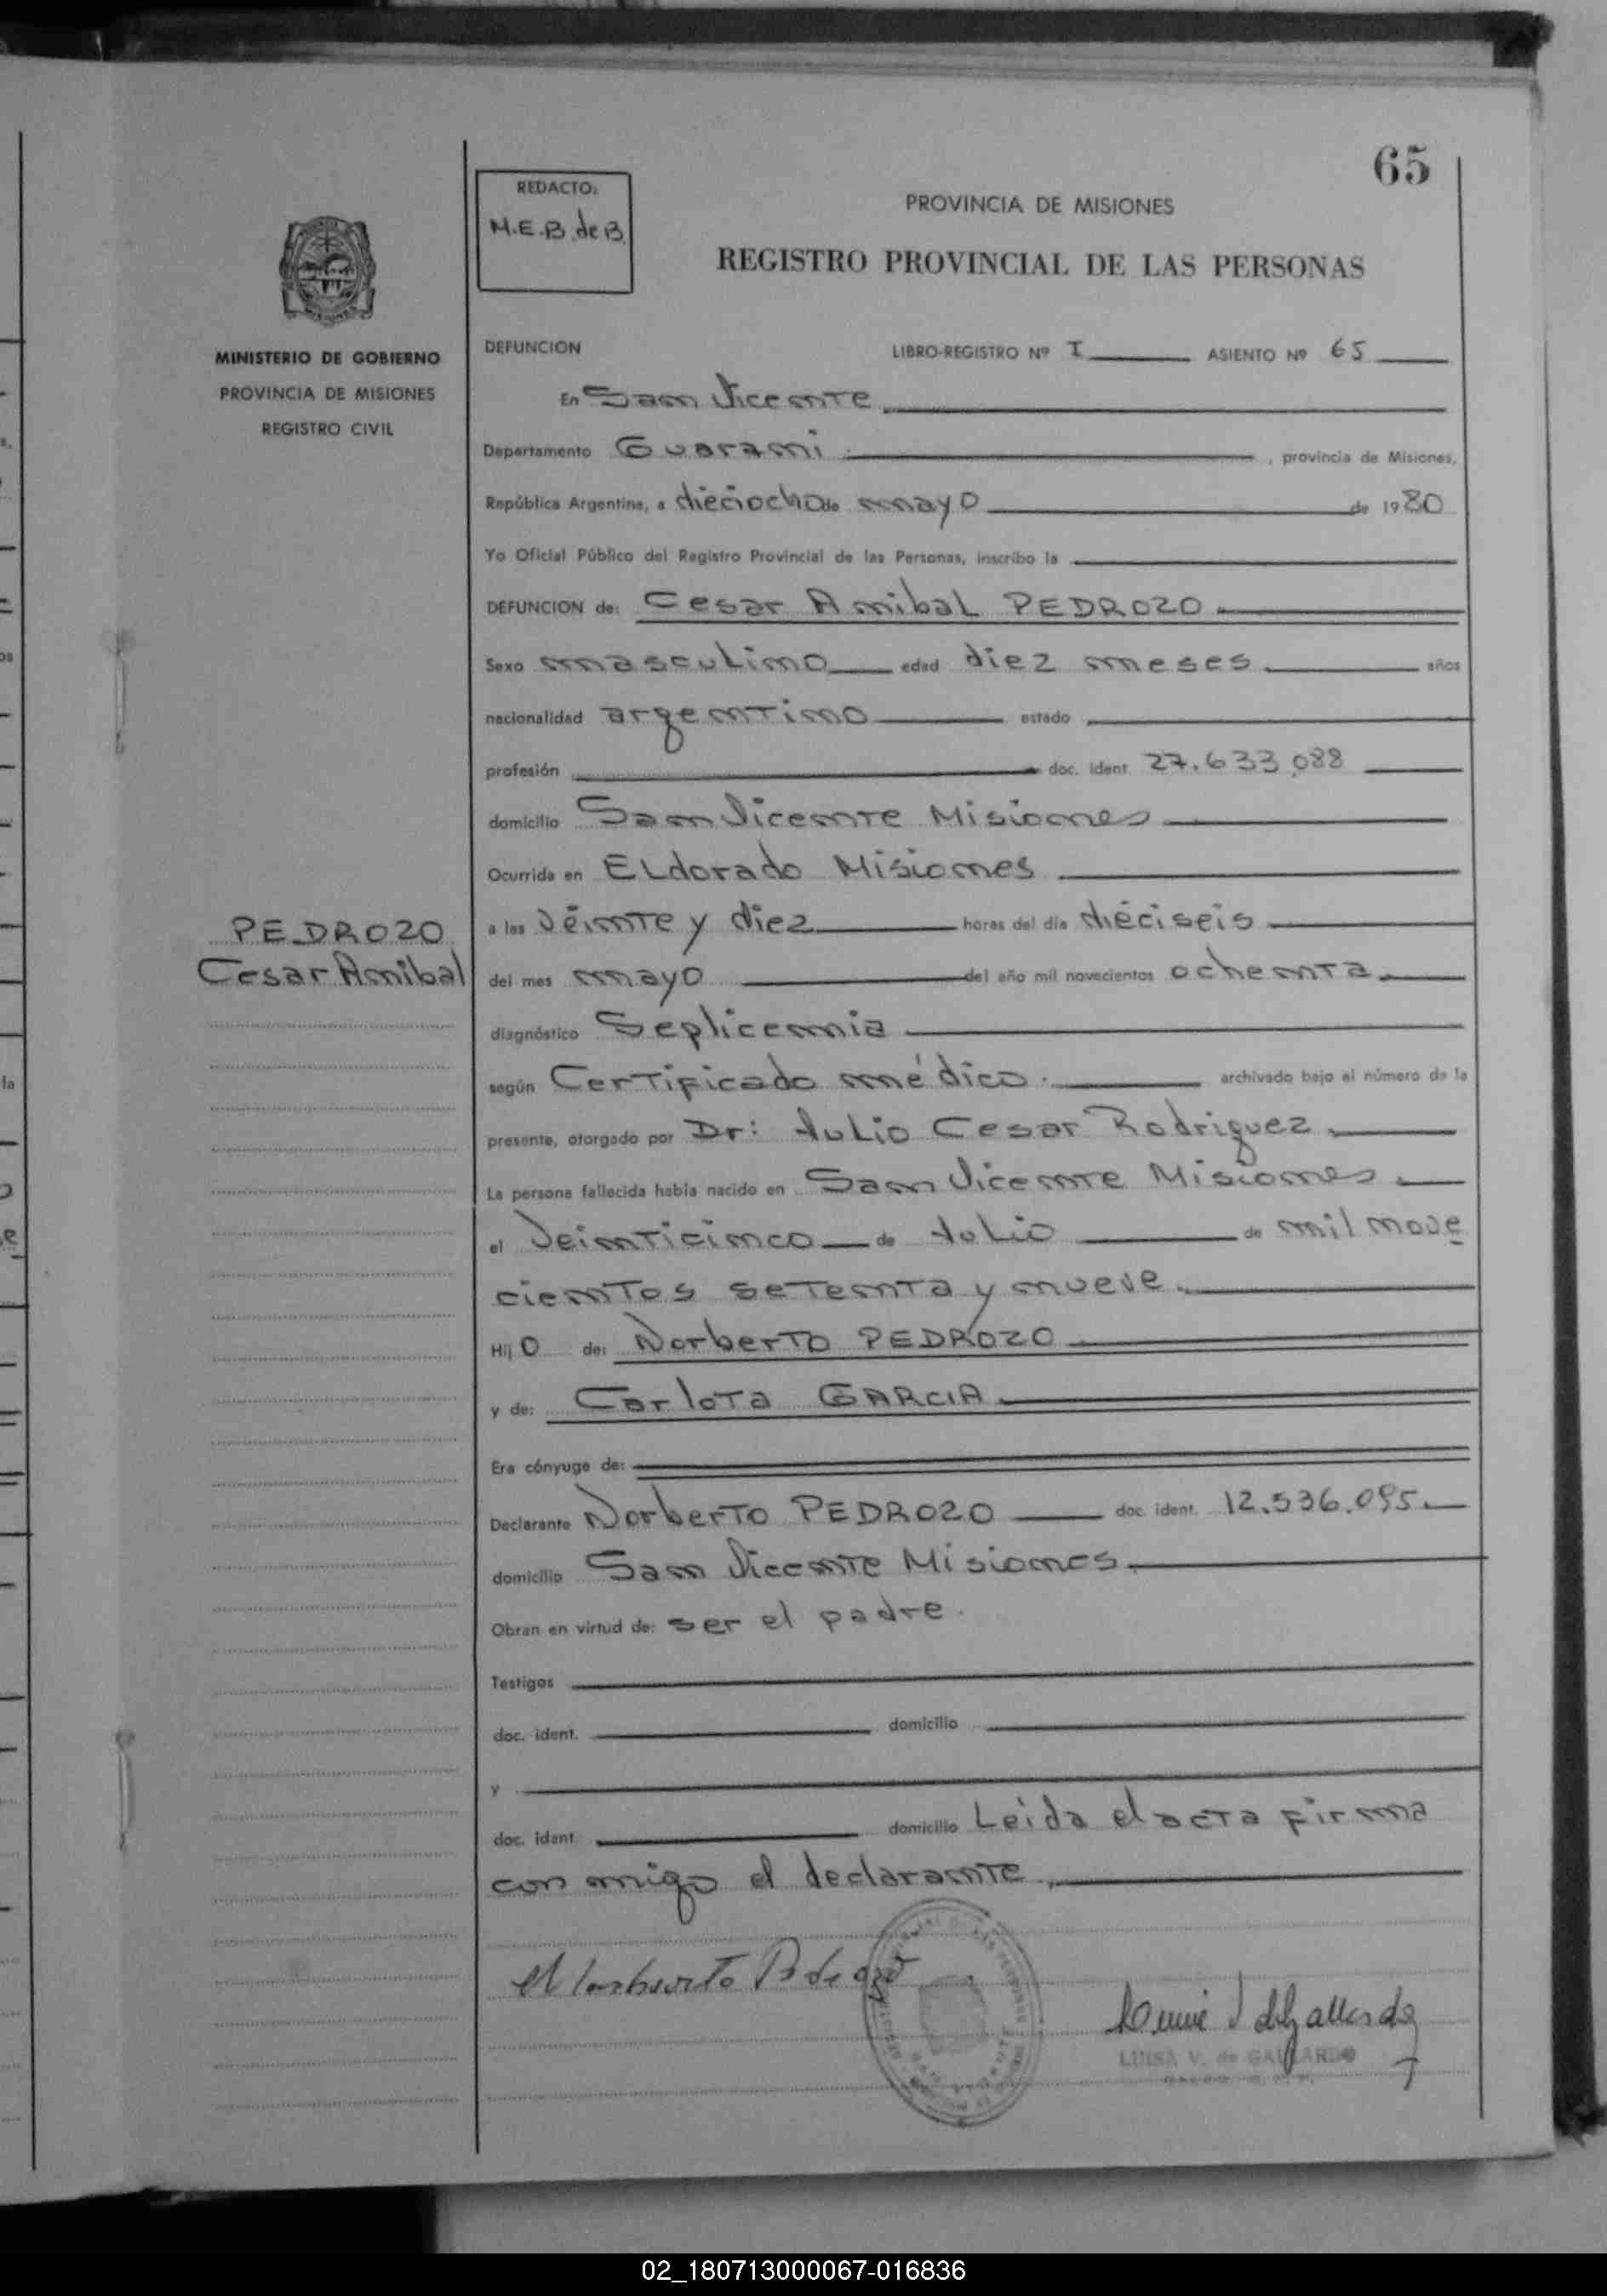 65
REDACTO:
M.E.B. de B.
PROVINCIA DE MISIONES
REGISTRO PROVINCIAL DE LAS PERSONAS
MINISTERIO DE GOBIERNO
PROVINCIA DE MISIONES
REGISTRO CIVIL
DEFUNCION LIBRO-REGISTRO Nº I ASIENTO Nº 65
En San Vicente
Departamento Guarani , provincia de Misiones,
República Argentina, a dieciocho de mayo de 1980
Yo Oficial Público del Registro Provincial de las Personas, inscribo la
DEFUNCION de: Cesar Anibal PEDROZO
Sexo masculino edad diez meses años
nacionalidad argentino estado
profesión doc. ident. 27.633.088
domicilio San Vicente Misiones
Ocurrida en ELdorado Misiones
a las veinte y diez horas del día dieciseis
del mes mayo del año mil novecientos ochenta
diagnóstico Septicemia
según Certificado médico. archivado bajo el número de la
presente, otorgado por Dr: Julio Cesar Rodriguez
La persona fallecida había nacido en San Vicente Misiones
el veinticinco de Julio de mil nove
cientos setenta y nueve.
Hijo de: Norberto PEDROZO
y de: Carlota GARCIA
Era cónyuge de:
Declarante Norberto PEDROZO doc. ident. 12.536.095.
domicilio San Vicente Misiones.
Obran en virtud de: ser el padre.
Testigos
doc. ident. domicilio
y
doc. ident. domicilio Leida el acta firma
con migo el declarante
PEDROZO
Cesar Anibal
Norberto Pedrozo
LUISA V. de GALLARDO
02_180713000067-016836